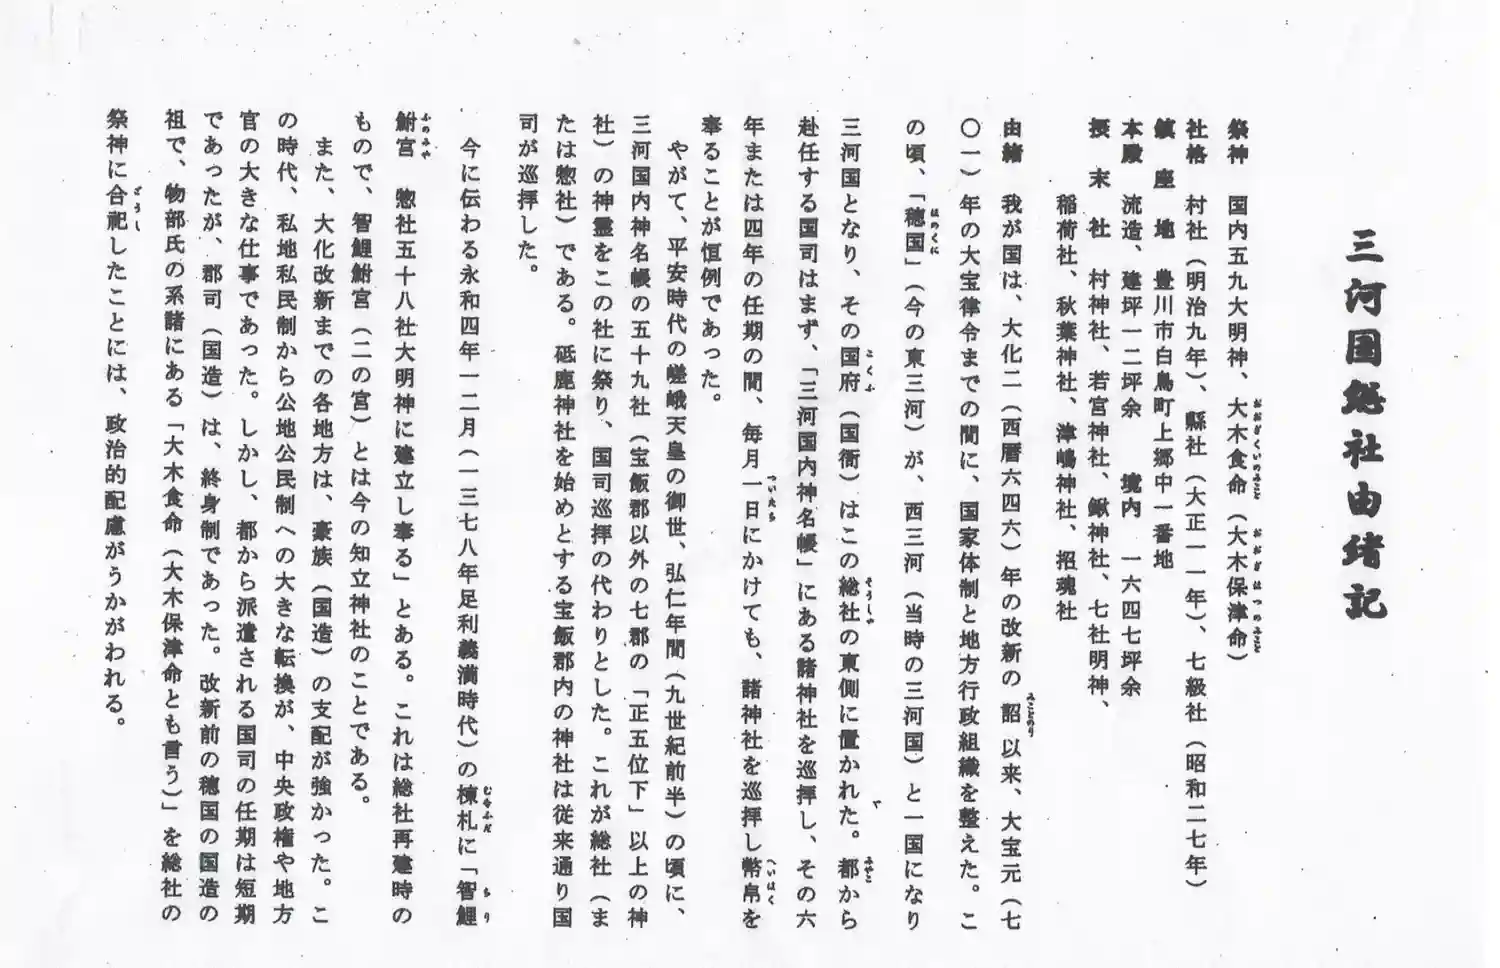 三河国総社由緒記
祭神　国内五九大明神、大木食命（大木保津命）
社格　村社（明治九年）、縣社（大正一一年）、七級社（昭和二七年）
鎮座地　豊川市白鳥町上郷中一番地
本殿　流造、建坪一二坪余　境内　一六四七坪余
摂末社　村神社、若宮神社、鍬神社、七社明神、
稲荷社、秋葉神社、津嶋神社、招魂社
由緒　我が国は、大化二（西暦六四六）年の改新の詔以来、大宝元（七
〇一）年の大宝律令までの間に、国家体制と地方行政組織を整えた。こ
の頃、「穂国」（今の東三河）が、西三河（当時の三河国）と一国になり
三河国となり、その国府（国衙）はこの総社の東側に置かれた。都から
赴任する国司はまず、「三河国内神名帳」にある諸神社を巡拝し、その六
年または四年の任期の間、毎月一日にかけても、諸神社を巡拝し幣帛を
奉ることが恒例であった。
やがて、平安時代の嵯峨天皇の御世、弘仁年間（九世紀前半）の頃に、
三河国内神名帳の五十九社（宝飯郡以外の七郡の「正五位下」以上の神
社）の神霊をこの社に祭り、国司巡拝の代わりとした。これが総社（ま
たは惣社）である。砥鹿神社を始めとする宝飯郡内の神社は従来通り国
司が巡拝した。
今に伝わる永和四年一二月（一三七八年足利義満時代）の棟札に「智鯉
鮒宮　惣社五十八社大明神に建立し奉る」とある。これは総社再建時の
もので、智鯉鮒宮（二の宮）とは今の知立神社のことである。
また、大化改新までの各地方は、豪族（国造）の支配が強かった。こ
の時代、私地私民制から公地公民制への大きな転換が、中央政権や地方
官の大きな仕事であった。しかし、都から派遣される国司の任期は短期
であったが、郡司（国造）は、終身制であった。改新前の穂国の国造の
祖で、物部氏の系諸にある「大木食命（大木保津命とも言う）」を総社の
祭神に合祀したことには、政治的配慮がうかがわれる。